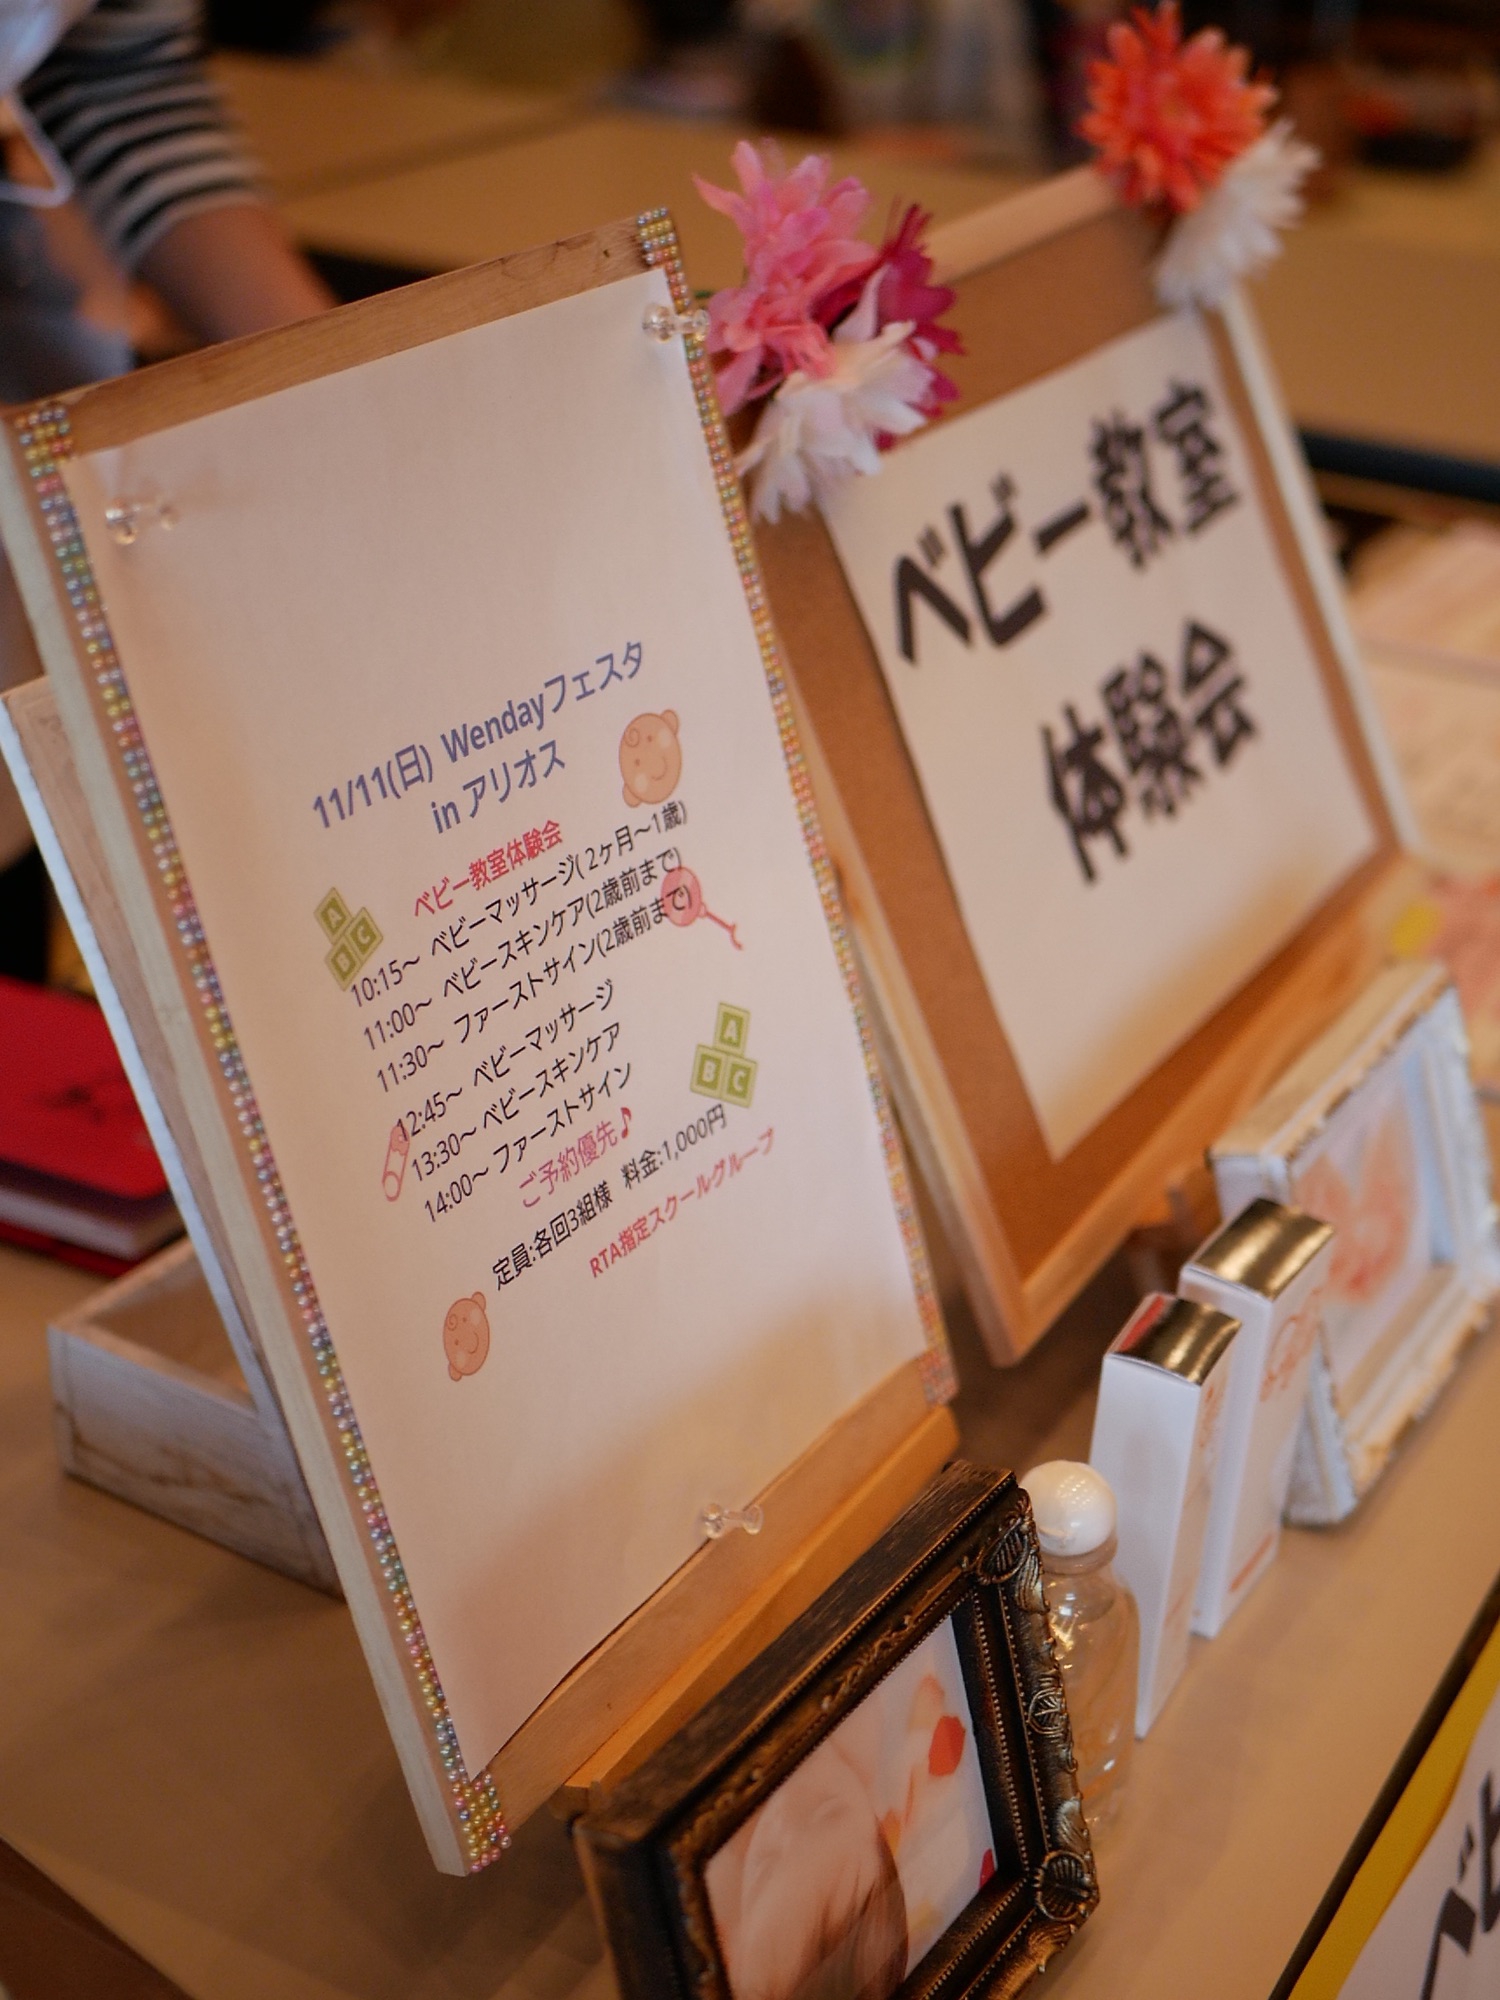 11/11(日) Wendayフェスタ
in アリオス
ベビー教室体験会
10:15～ ベビーマッサージ(2ヶ月～1歳)
11:00～ ベビースキンケア(2歳前まで)
11:30～ ファーストサイン(2歳前まで)
12:45～ ベビーマッサージ
13:30～ ベビースキンケア
14:00～ ファーストサイン
ご予約優先♪
定員:各回3組様 料金:1,000円
RTA指定スクールグループ
A
B C
A
B C
ベビー教室
体験会
ベビ